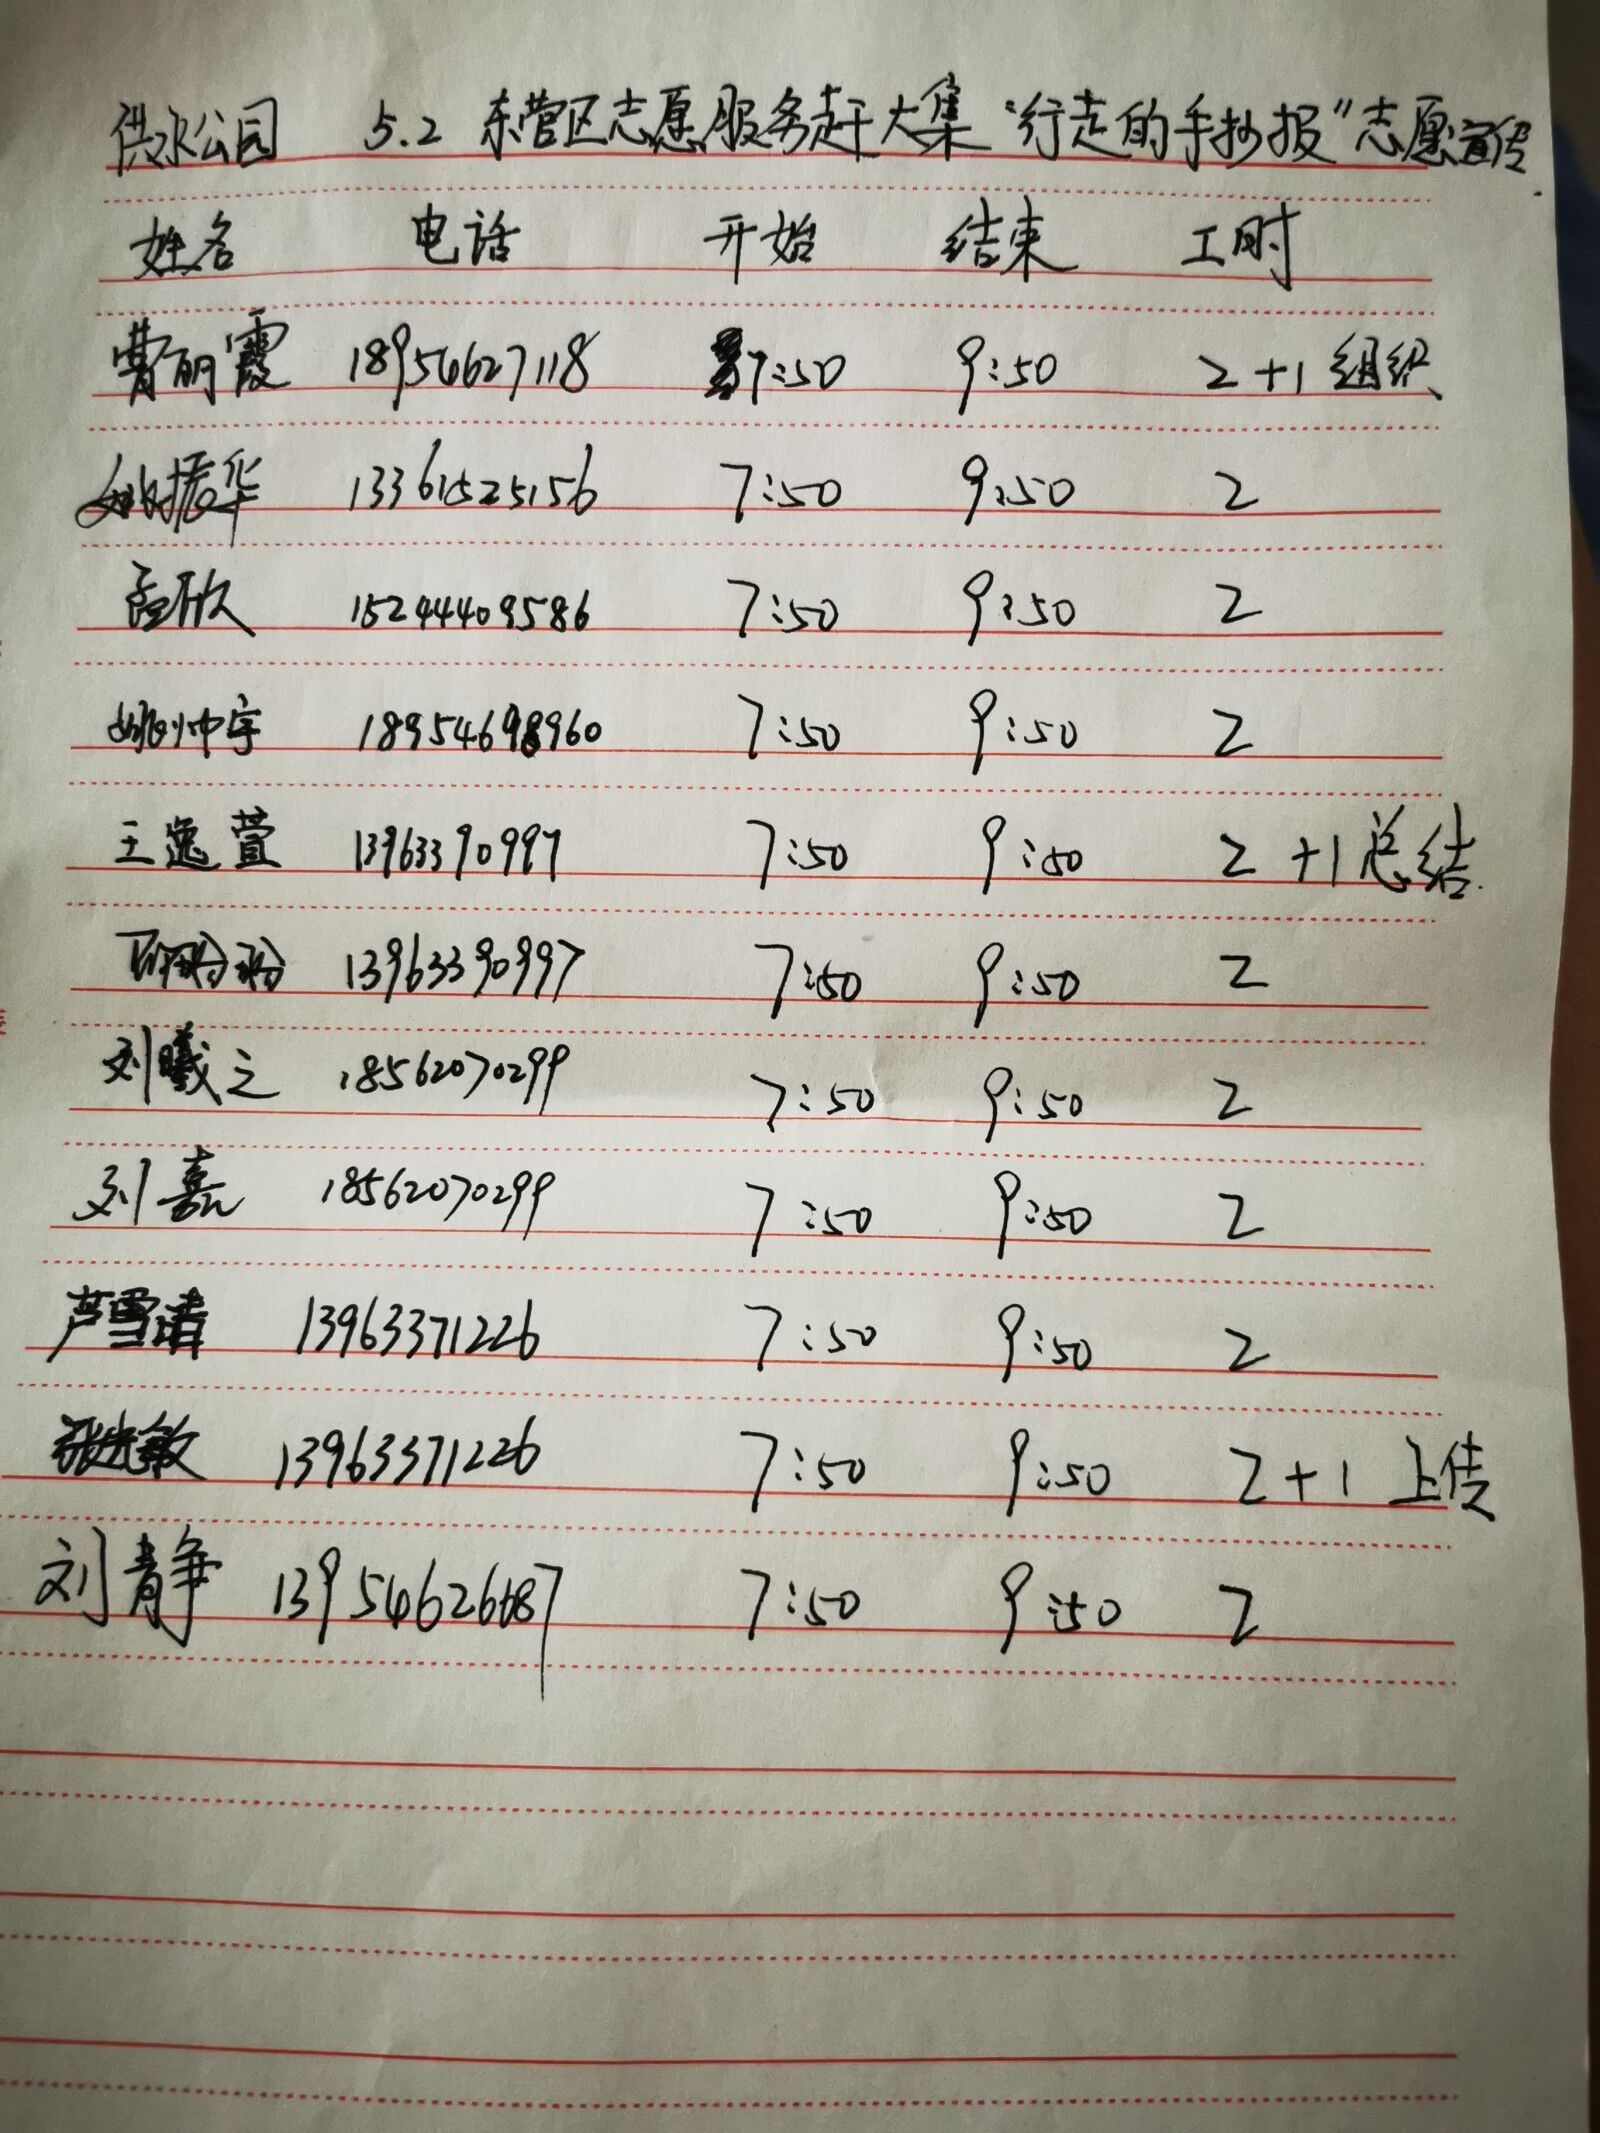 供水公园 5.2 东营区志愿服务赶大集“行走的手抄报”志愿宣传
姓名 电话 开始 结束 工时
曹丽霞 18954627118 7:50 9:50 2+1组织
姚振华 13361525156 7:50 9:50 2
孟欣 15244409586 7:50 9:50 2
姚帅宇 18954698960 7:50 9:50 2
王逸萱 13963390997 7:50 9:50 2+1总结
13963390997 7:50 9:50 2
刘曦之 18562070299 7:50 9:50 2
刘嘉 18562070299 7:50 9:50 2
芦雪清 13963371226 7:50 9:50 2
张光敏 13963371226 7:50 9:50 2+1 上传
刘青静 13954626687 7:50 9:50 2